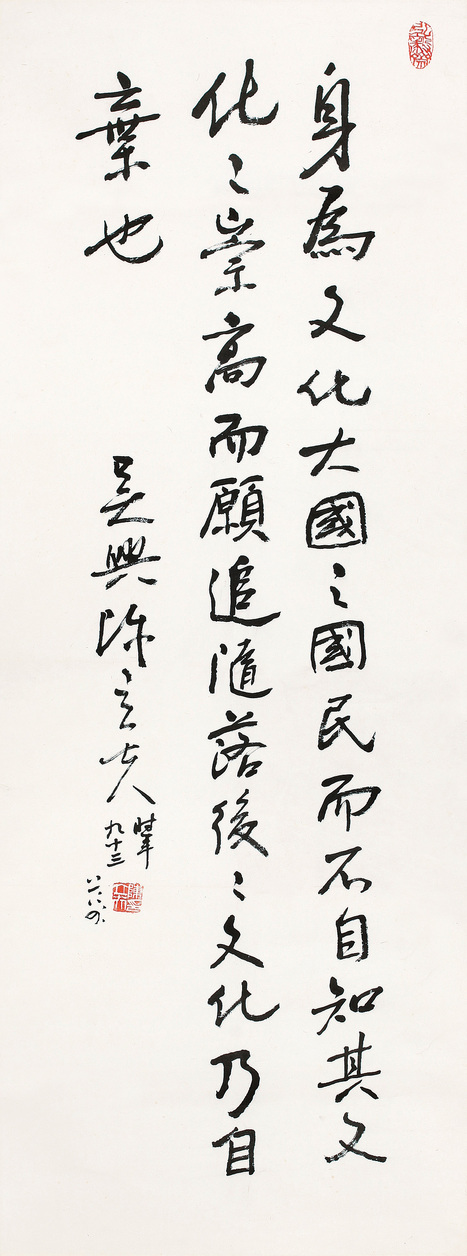 身為文化大國之國民而不自知其文
化之崇高而願追隨落後之文化乃自
棄也
吳興陳立夫
時年
九十三
八八四